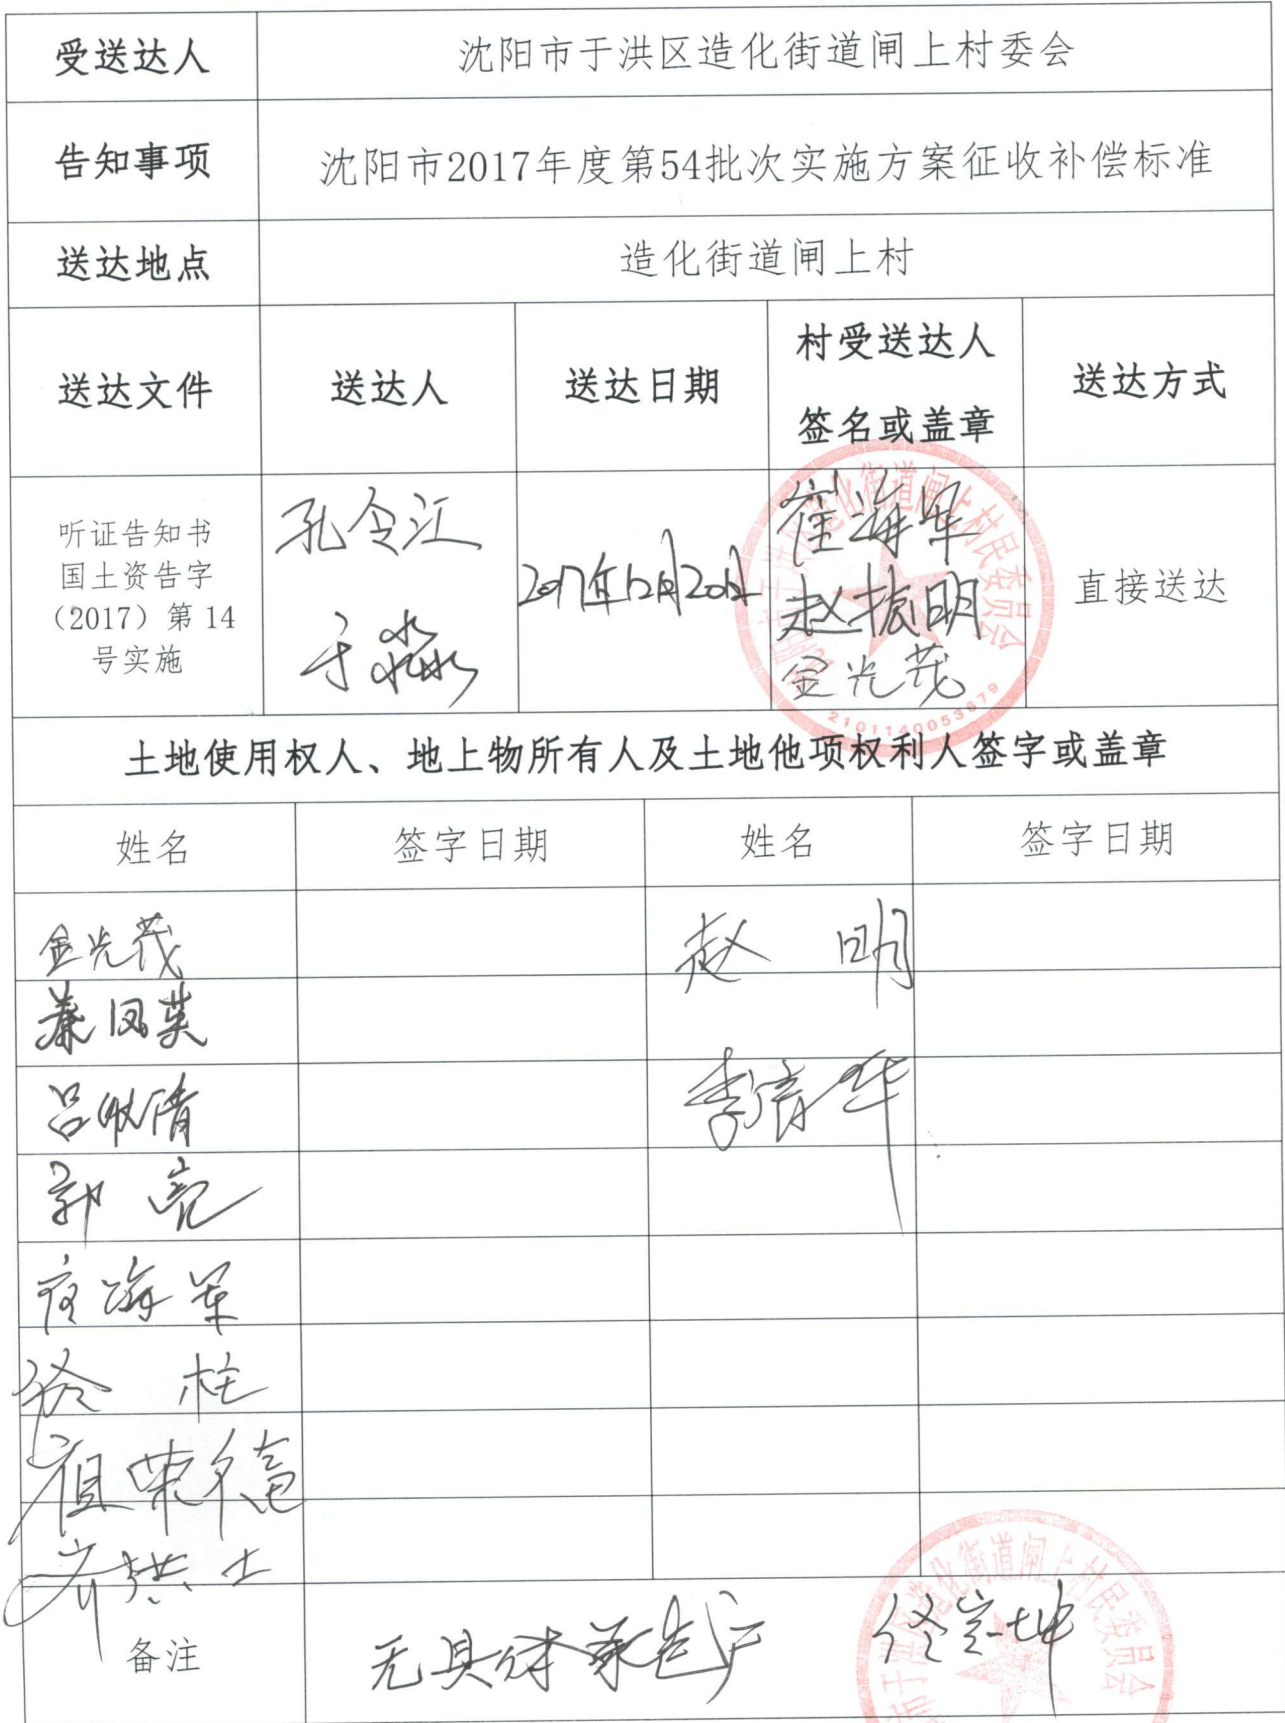 受送达人
沈阳市于洪区造化街道闸上村委会
告知事项
沈阳市2017年度第54批次实施方案征收补偿标准
送达地点
造化街道闸上村
送达文件
送达人
送达日期
村受送达人
签名或盖章
送达方式
听证告知书
国土资告字
（2017）第 14
号实施
孔令江
于淼
2017年12月20日
崔海军
赵振明
金光茂
直接送达
2101140053679
土地使用权人、地上物所有人及土地他项权利人签字或盖章
姓名
签字日期
姓名
签字日期
金光茂
赵 明
秦凤英
李清华
郭 亮
佟 柱
祖荣福
齐洪士
备注
无具体承包户